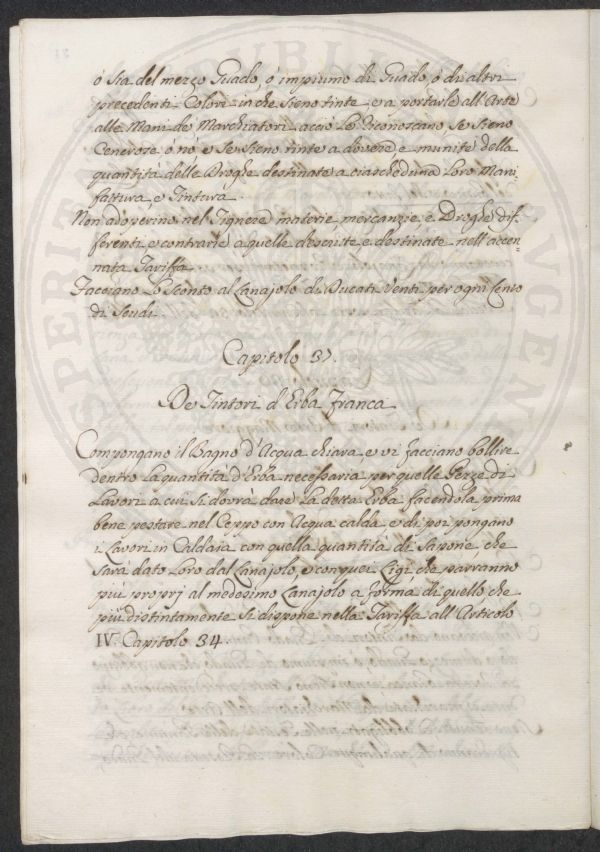 ò sia del mezzo Guado, ò impiumo di Guado, ò di altri
precedenti Colori in che sieno tinte e a portarle all'Arte
alle Mani de Marchiatori acciò le riconoscano, se sieno
Generose ò nò e se sieno tinte a dovere e munite della
quantità delle Droghe destinate a ciascheduna loro Mani-
fattura, e Tintura.
Non adoperino nel Tignere materie, mercanzie, e Droghe dif-
ferenti, e contrarie a quelle descritte e destinate nell'accen-
nata Tariffa.
Facciano lo Sconto al Lanajolo di Ducati Venti per ogni Cento
di Scudi.
Capitolo 37.
De Tintori d'Erba Franca
Compongano il Bagno d'Acqua chiara, e vi facciano bollire
dentro la quantità d'Erba necessaria per quelle Pezze di
Lavori a cui si dovrà dare la detta Erba facendola prima
bene pestare nel Ceppo con Acqua calda e di poi pongano
i Lavori in Caldaia con quella quantità di Sapone che
sarà dato loro dal Lanajolo, e con quei Ligi, che parranno
più proprj al medesimo Lanajolo a forma di quello che
più distintamente si dispone nella Tariffa all'Articolo
IV. Capitolo 34.